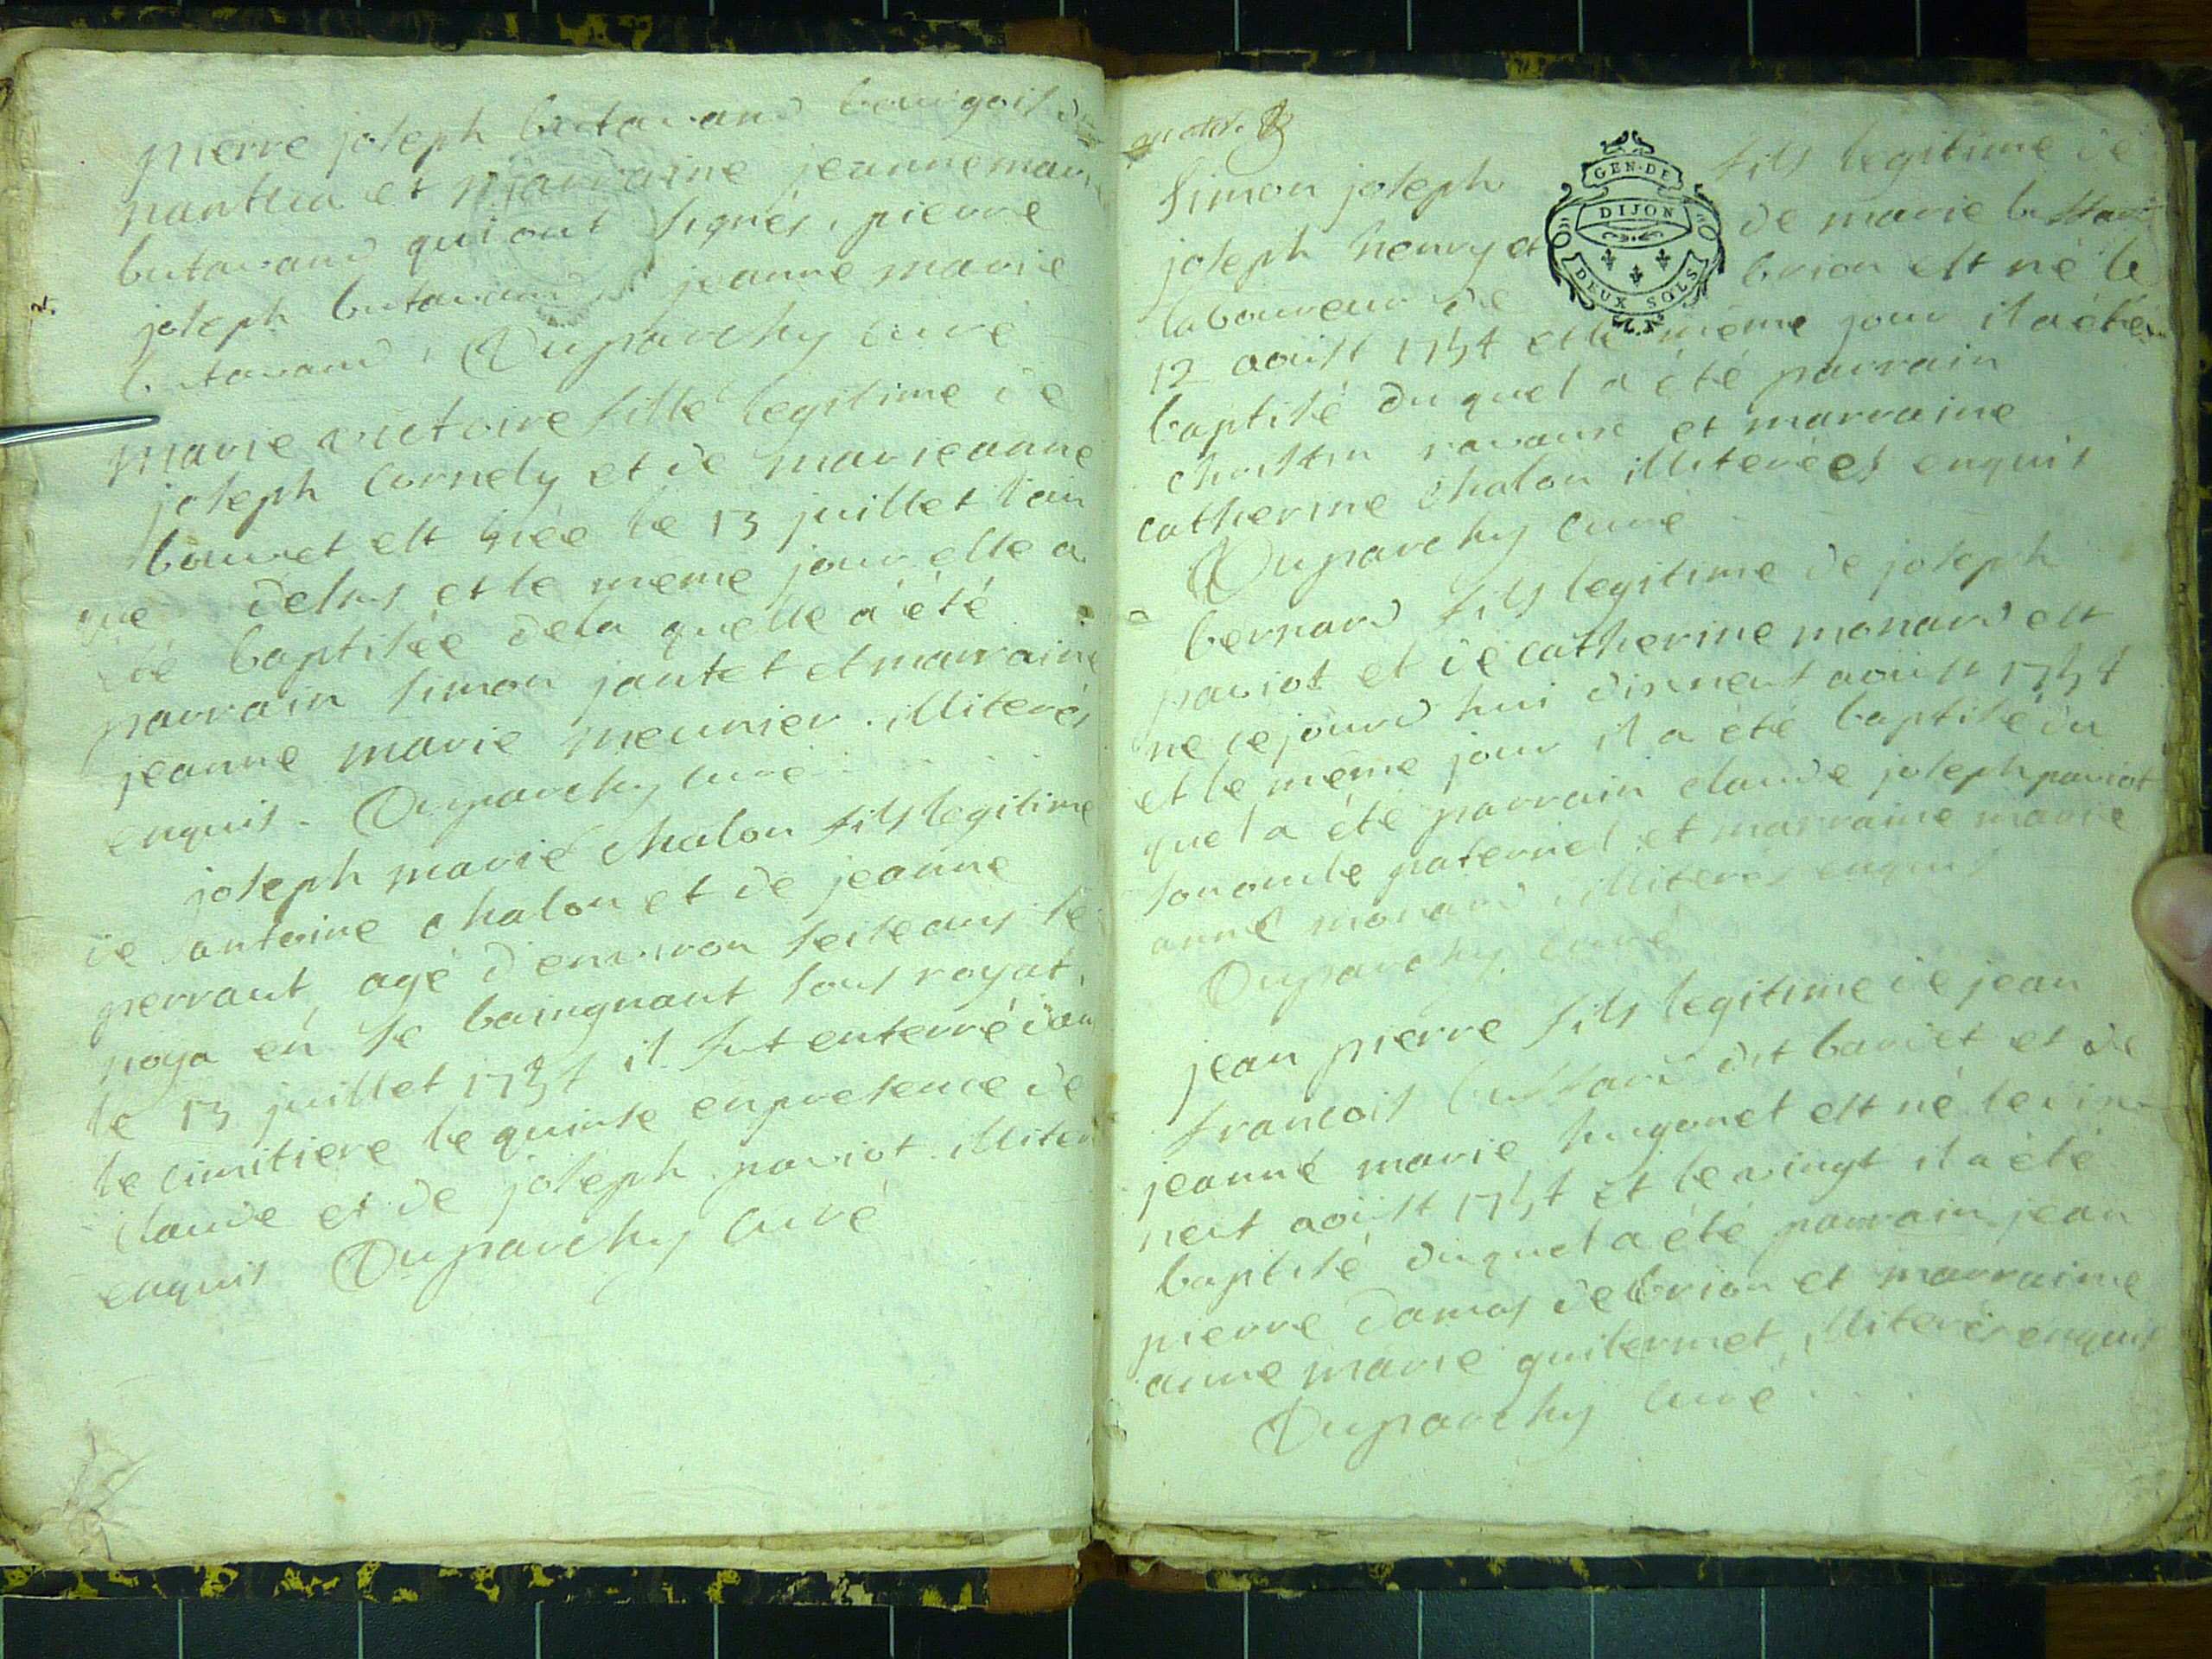 pierre joseph butavand bourgois de
nantua et marraine jeanne marie
butavand qui ont signés, pierre
joseph butavand jeanne marie
butavand, Duparchy curé
marie victoire fille legitime de
joseph Cornely et de marie anne
bouvet est née le 13 juillet l'an
que desus et le meme jour elle a
été baptisée de la quelle a été
parrain simon jantet et marraine
jeanne marie meunier. illiterés
enquis. Duparchy curé
joseph marie chalon fils legitime
de antoine chalon et de jeanne
perraut, agé d'environ seise ans se
noya en se baingnant sous royat.
le 13 juillet 1754 il fut enterré dans
le cimitiere le quinse en presence de
claude et de joseph paviot illiter
enquis Duparchy curé
GEN. DE
DIJON
DEUX SOLS
Simon joseph fils legitime de
joseph henry et de marie bussard
laboureur de brion est né le
12 aoust 1754 et le même jour il a été
baptisé du quel a été parrain
christin ravaud et marraine
catherine chalon illiterées enquis
Duparchy curé
bernard fils legitime de joseph
paviot et de catherine monard est
né ce jourd'hui dixneuf aoust 1754
et le même jour il a été baptisé du
quel a été parrain claude joseph paviot
son oncle paternel et marraine marie
anne monard illiterés enquis
Duparchy curé
jean pierre fils legitime de jean
francois bussard dit bardet et de
jeanne marie hugonet est né le dix
neuf aoust 1754 et le vingt il a été
baptisé du quel a été parrain jean
pierre damas de brion et marraine
anne marie guilermet illiterés enquis
Duparchy curé